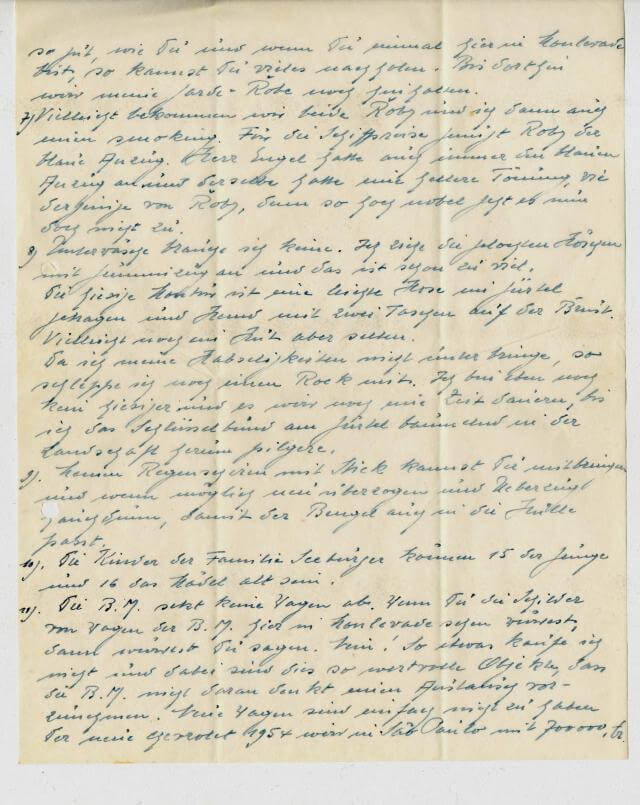 so gut, wie Du und wenn Du einmal hier in Monlevade
bist, so kannst Du vieles nachholen. Bis dorthin
wird meine Garde-Robe noch hinhalten.
7) Vielleicht bekommen wir beide Roby und ich dann auch
einen smoking. Für die Schiffsreise genügt Roby der
blaue Anzug. Herr Engel hatte auch immer den blauen
Anzug an und derselbe hatte eine hellere Tönung, wie
derjenige von Roby, denn so hoch nobel geht es nun
doch nicht zu.
8) Unterwäsche brauche ich keine. Ich ziehe die Höschen
mit Gummizug an und das ist schon zu viel.
Die hiesige Kontur ist eine leichte Hose mit Gürtel
getragen und Hemd mit zwei Taschen auf der Brust.
Vielleicht noch ein Hut aber selten.
Da ich meine Habseligkeiten nicht unterbringe, so
schleppe ich noch einen Rock mit. Ich bin eben noch
kein hiesiger und es wird noch eine Zeit dauern, bis
ich das Schlüsselbund am Gürtel baumelnd in der
Landschaft herum pilgere.
9) Meinen Regenschirm mit Stock kannst Du mitbringen
und wenn möglich neu überzogen und Ueberzug
hauchdünn, damit der Bengel auch in die Hülle
passt.
10) Die Kinder der Familie Seeburger können 15 der Junge
und 16 das Mädel alt sein.
11) Die B.M. setzt keine Wagen ab. Wenn Du die Schilder
von Wagen der B.M. hier in Monlevade sehen würdest,
dann würdest Du sagen. Nein! So etwas kaufe ich
nicht und dabei sind dies so wertvolle Objekte, dass
die B.M. nicht daran denkt einen Austausch vor-
zunehmen. Neue Wagen sind einfach nicht zu haben
Der neue Chevrolet 1954 wird in São Paulo mit 700000, Cr.